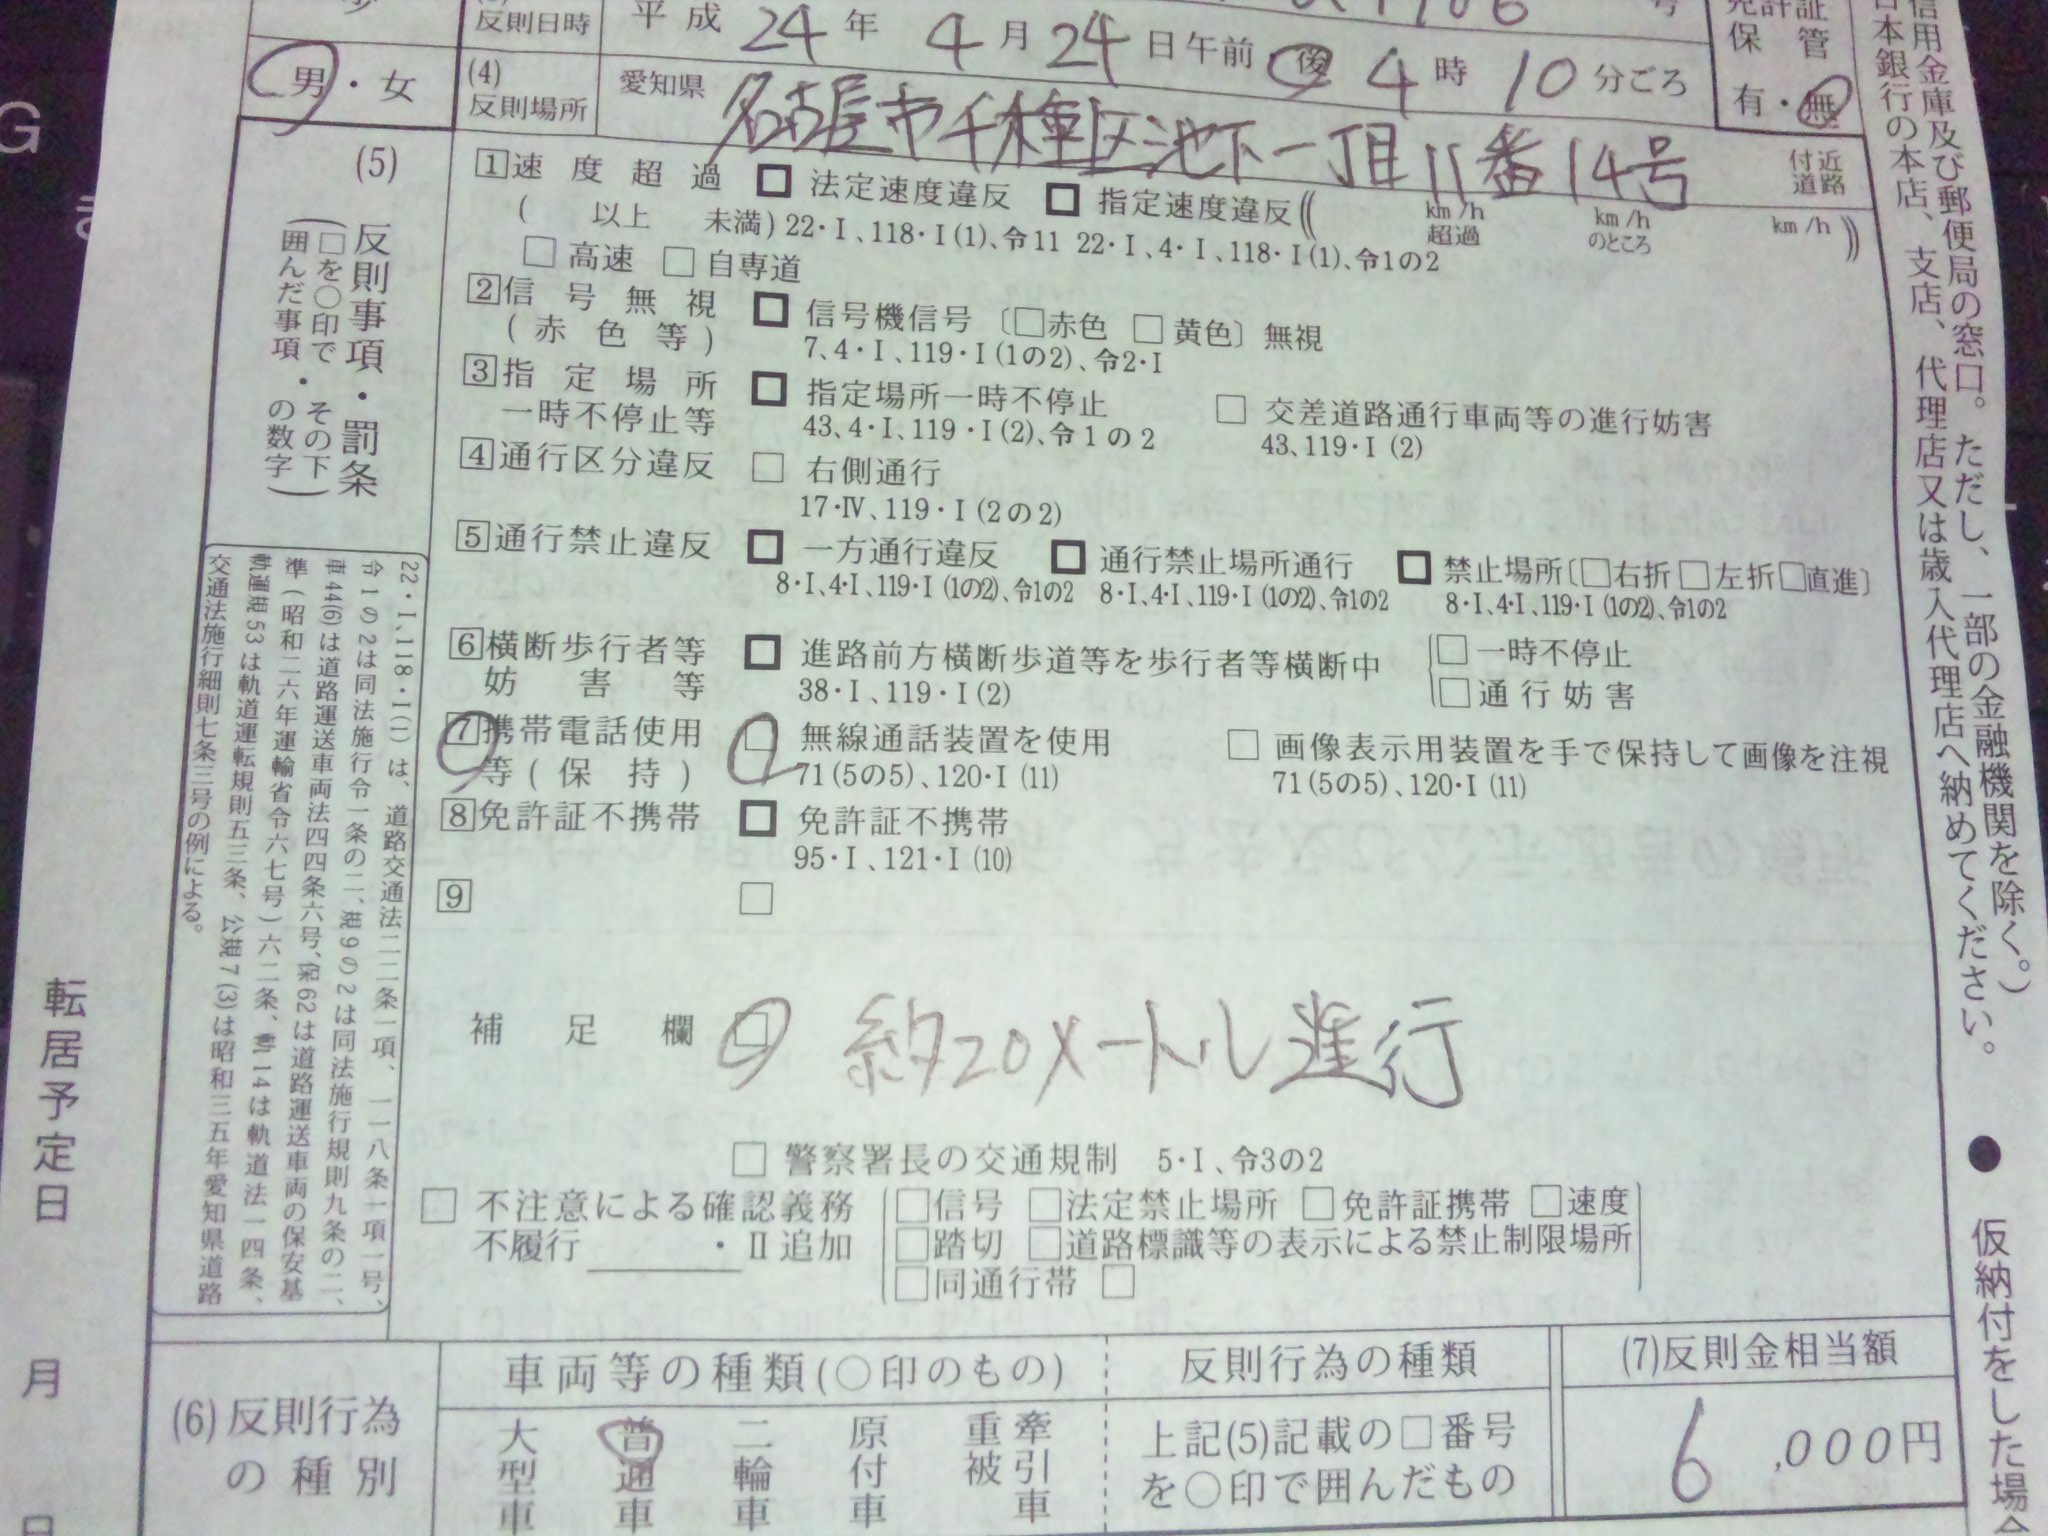 反則日時
平成 24年 4月 24日 午前 後 4時 10分ごろ
免許証
保管
有・無
男・女
(4)
反則場所
愛知県
名古屋市千種区池下一丁目11番14号
付近
道路
(5)
反則事項・罰条
(□を○印で囲んだ事項・その下の数字)
1 速度超過 □ 法定速度違反 □ 指定速度違反(( km/h超過 km/hのところ km/h ))
( 以上 未満) 22・I、118・I(1)、令11 22・I、4・I、118・I(1)、令1の2
□ 高速 □ 自専道
2 信号無視 □ 信号機信号 〔□赤色 □黄色〕無視
(赤色等) 7、4・I、119・I(1の2)、令2・I
3 指定場所 □ 指定場所一時不停止 □ 交差道路通行車両等の進行妨害
一時不停止等 43、4・I、119・I(2)、令1の2 43、119・I(2)
4 通行区分違反 □ 右側通行
17・Ⅳ、119・I(2の2)
5 通行禁止違反 □ 一方通行違反 □ 通行禁止場所通行 □ 禁止場所〔□右折 □左折 □直進〕
8・I、4・I、119・I(1の2)、令1の2 8・I、4・I、119・I(1の2)、令1の2 8・I、4・I、119・I(1の2)、令1の2
6 横断歩行者等 □ 進路前方横断歩道等を歩行者等横断中 □一時不停止
妨害等 38・I、119・I(2) □通行妨害
7 携帯電話使用 □ 無線通話装置を使用 □ 画像表示用装置を手で保持して画像を注視
等(保持) 71(5の5)、120・I(11) 71(5の5)、120・I(11)
8 免許証不携帯 □ 免許証不携帯
95・I、121・I(10)
9 □
補足欄 □ 約20メートル進行
□ 警察署長の交通規制 5・I、令3の2
□ 不注意による確認義務 □信号 □法定禁止場所 □免許証携帯 □速度
不履行 ・Ⅱ追加 □踏切 □道路標識等の表示による禁止制限場所
□同通行帯 □
22・I、118・I(1)は、道路交通法二二条一項、一一八条一項一号、
令1の2は同法施行令一条の二、規9の2は同法施行規則九条の二、
車44(6)は道路運送車両法四四条六号、保62は道路運送車両の保安基
準(昭和二六年運輸省令六七号)六二条、軌14は軌道法一四条、
軌運規53は軌道運転規則五三条、公規7(3)は昭和三五年愛知県道路
交通法施行細則七条三号の例による。
(6)反則行為
の種別
車両等の種類(○印のもの)
大型車
普通車
二輪車
原付車
重被牽引車
反則行為の種類
上記(5)記載の□番号
を○印で囲んだもの
(7)反則金相当額
6,000円
信用金庫及び郵便局の窓口。ただし、一部の金融機関を除く。)
日本銀行の本店、支店、代理店又は歳入代理店へ納めてください。
● 仮納付をした場合
転居予定日
月
日
G